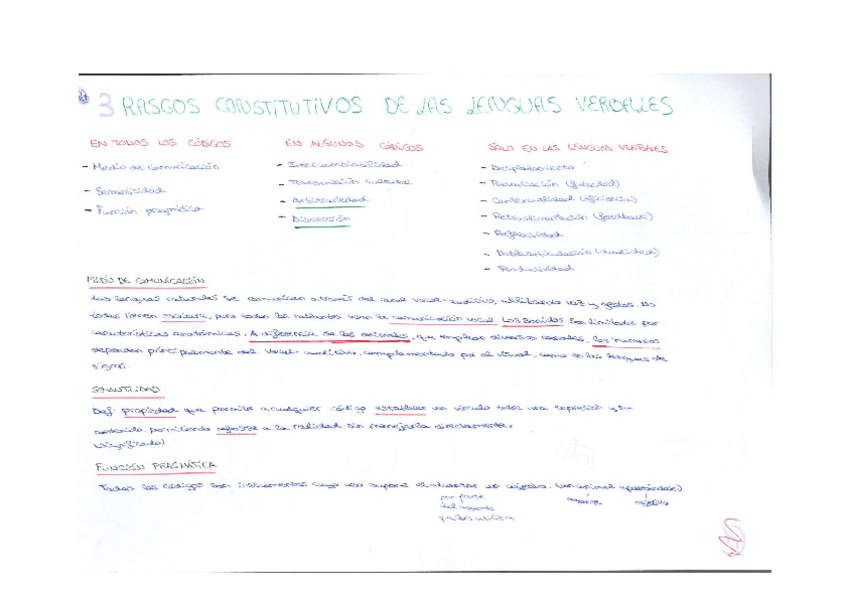 3 RASGOS CONSTITUTIVOS DE LAS LENGUAS VERBALES
EN TODOS LOS CÓDIGOS
- Medio de comunicación
- Semanticidad
- Función pragmática
EN ALGUNOS CÓDIGOS
- Intercambiabilidad
- Transmisión cultural
- Arbitrariedad
- Discreción
SOLO EN LAS LENGUAS VERBALES
- Desplazamiento
- Prevaricación (falsedad)
- Contextualidad (eficiencia)
- Retroalimentación (feedback)
- Reflexividad
- Doble articulación (dualidad)
- Productividad
MEDIO DE COMUNICACIÓN
Las lenguas naturales se comunican a través del canal vocal-auditivo, utilizando voz y gestos. No
todas tienen escritura, pero todos los hablantes usan la comunicación vocal. Los sonidos son limitados por
características anatómicas. A diferencia de los animales, que emplean diversos canales, los humanos
dependen principalmente del vocal-auditivo, complementado por el visual, como en las lenguas de
signos.
SEMANTICIDAD
Def: propiedad que permite a cualquier código establecer un vínculo entre una expresión y su
contenido, permitiendo referirse a la realidad sin manejarla directamente.
(significado)
FUNCIÓN PRAGMÁTICA
Todos los códigos son instrumentos cuyo uso supone el alcanzar un objetivo. (un animal
por parte
del agente
que los utiliza
objetivo